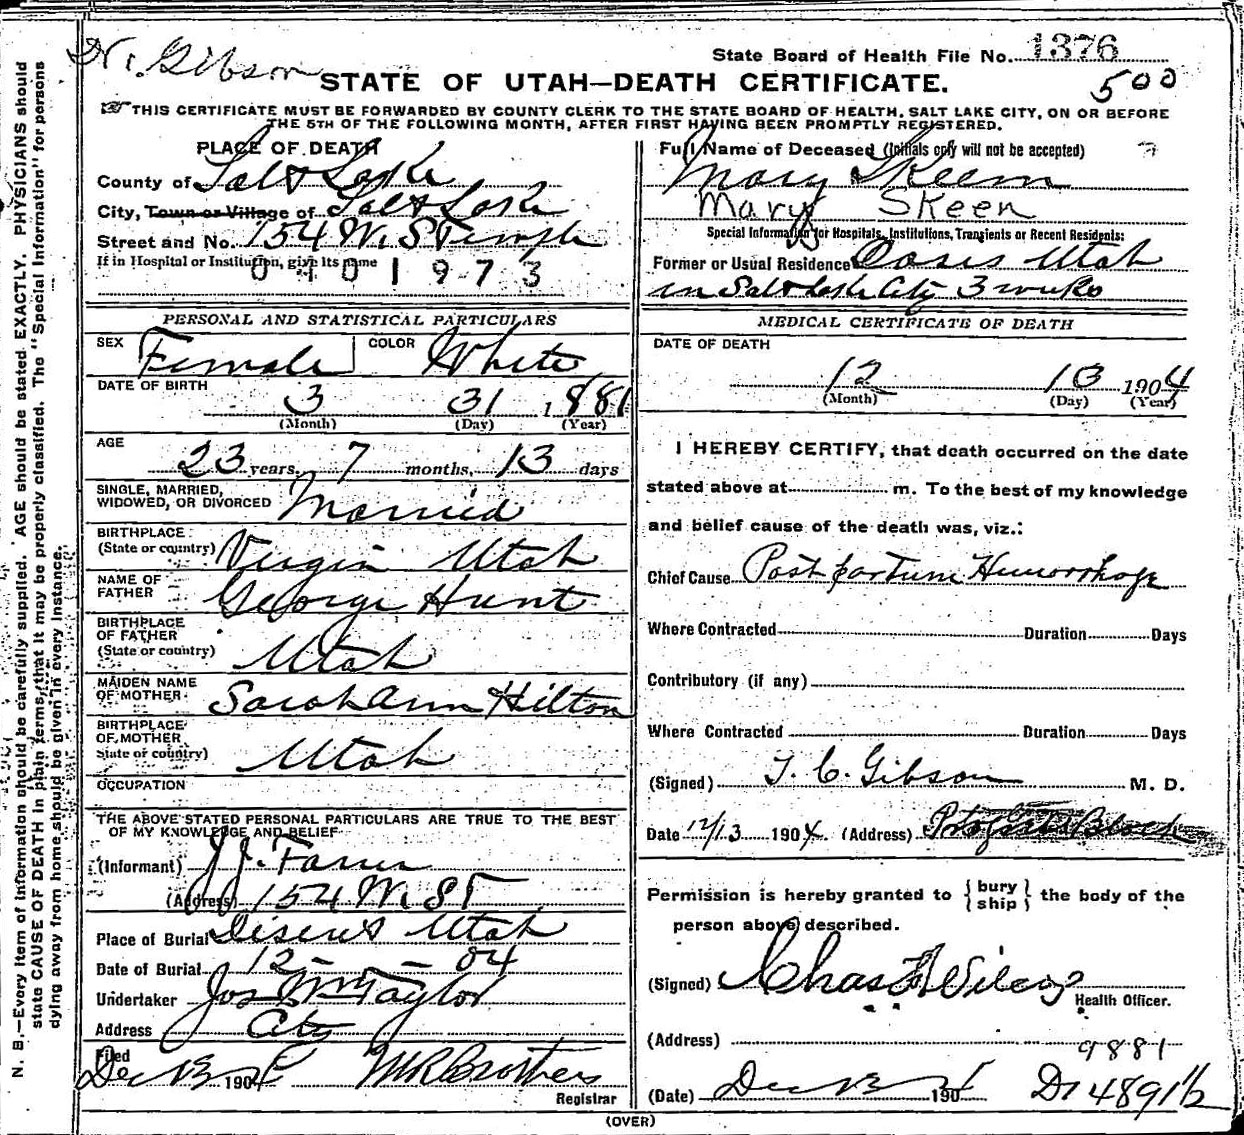 Dr. Gibson
State Board of Health File No. 1376
STATE OF UTAH—DEATH CERTIFICATE.
500
THIS CERTIFICATE MUST BE FORWARDED BY COUNTY CLERK TO THE STATE BOARD OF HEALTH, SALT LAKE CITY, ON OR BEFORE
THE 5TH OF THE FOLLOWING MONTH, AFTER FIRST HAVING BEEN PROMPTLY REGISTERED.
PLACE OF DEATH
County of Salt Lake
City, Town or Village of Salt Lake
Street and No. 154 W. S Temple
If in Hospital or Institution, give its name
0401973
Full Name of Deceased (Initials only will not be accepted)
Mary Skeem
Mary Skeen
Special Information for Hospitals, Institutions, Transients or Recent Residents:
Former or Usual Residence Oasis Utah
in Salt Lake City 3 weeks
PERSONAL AND STATISTICAL PARTICULARS
SEX Female COLOR White
DATE OF BIRTH
3 31 1881
(Month) (Day) (Year)
AGE
23 years, 7 months, 13 days
SINGLE, MARRIED,
WIDOWED, OR DIVORCED Married
BIRTHPLACE
(State or country) Virgin Utah
NAME OF
FATHER George Hunt
BIRTHPLACE
OF FATHER
(State or country) Utah
MAIDEN NAME
OF MOTHER Sarah Ann Hilton
BIRTHPLACE
OF MOTHER
State or country) Utah
OCCUPATION
THE ABOVE STATED PERSONAL PARTICULARS ARE TRUE TO THE BEST
OF MY KNOWLEDGE AND BELIEF
(Informant) J.J.
(Address) 154 W. ST
Place of Burial Deseret Utah
Date of Burial 12 — — 04
Undertaker Jos Wm Taylor
Address City
Filed
Dec 13 1904 M R Brothers
Registrar
MEDICAL CERTIFICATE OF DEATH
DATE OF DEATH
12 13 1904
(Month) (Day) (Year)
I HEREBY CERTIFY, that death occurred on the date
stated above at m. To the best of my knowledge
and belief cause of the death was, viz.:
Chief Cause Post partum Hemorrhage
Where Contracted Duration Days
Contributory (if any)
Where Contracted Duration Days
(Signed) T. C. Gibson M. D.
Date 12/13 1904 (Address) Block
Permission is hereby granted to {bury
ship} the body of the
person above described.
(Signed) Chas F Wilcox
Health Officer.
(Address)
9881
(Date) Dec 13 1904 4891½
(OVER)
N. B.—Every item of information should be carefully supplied. AGE should be stated EXACTLY. PHYSICIANS should
state CAUSE OF DEATH in plain terms, that it may be properly classified. The "Special Information" for persons
dying away from home should be given in every instance.